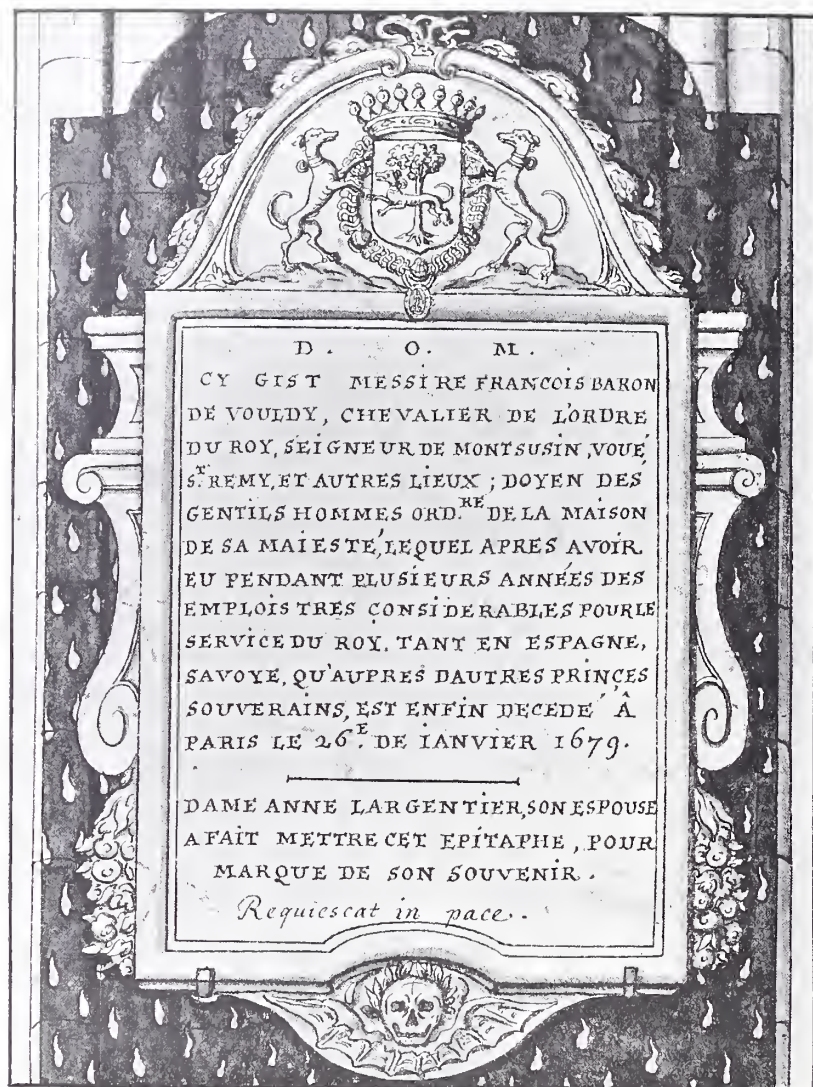 D. O. M.
CY GIST MESSIRE FRANCOIS BARON
DE VOULDY, CHEVALIER DE L'ORDRE
DU ROY, SEIGNEUR DE MONTSUSIN, VOUÉ,
S.T REMY, ET AUTRES LIEUX ; DOYEN DES
GENTILS HOMMES ORD.RE DE LA MAISON
DE SA MAIESTÉ, LEQUEL APRES AVOIR
EU PENDANT PLUSIEURS ANNÉES DES
EMPLOIS TRES CONSIDERABLES POUR LE
SERVICE DU ROY, TANT EN ESPAGNE,
SAVOYE, QU'AUPRES DAUTRES PRINCES
SOUVERAINS, EST ENFIN DECEDÉ Â
PARIS LE 26.E DE IANVIER 1679.
DAME ANNE LARGENTIER, SON ESPOUSE
A FAIT METTRE CET EPITAPHE, POUR
MARQUE DE SON SOUVENIR.
Requiescat in pace..